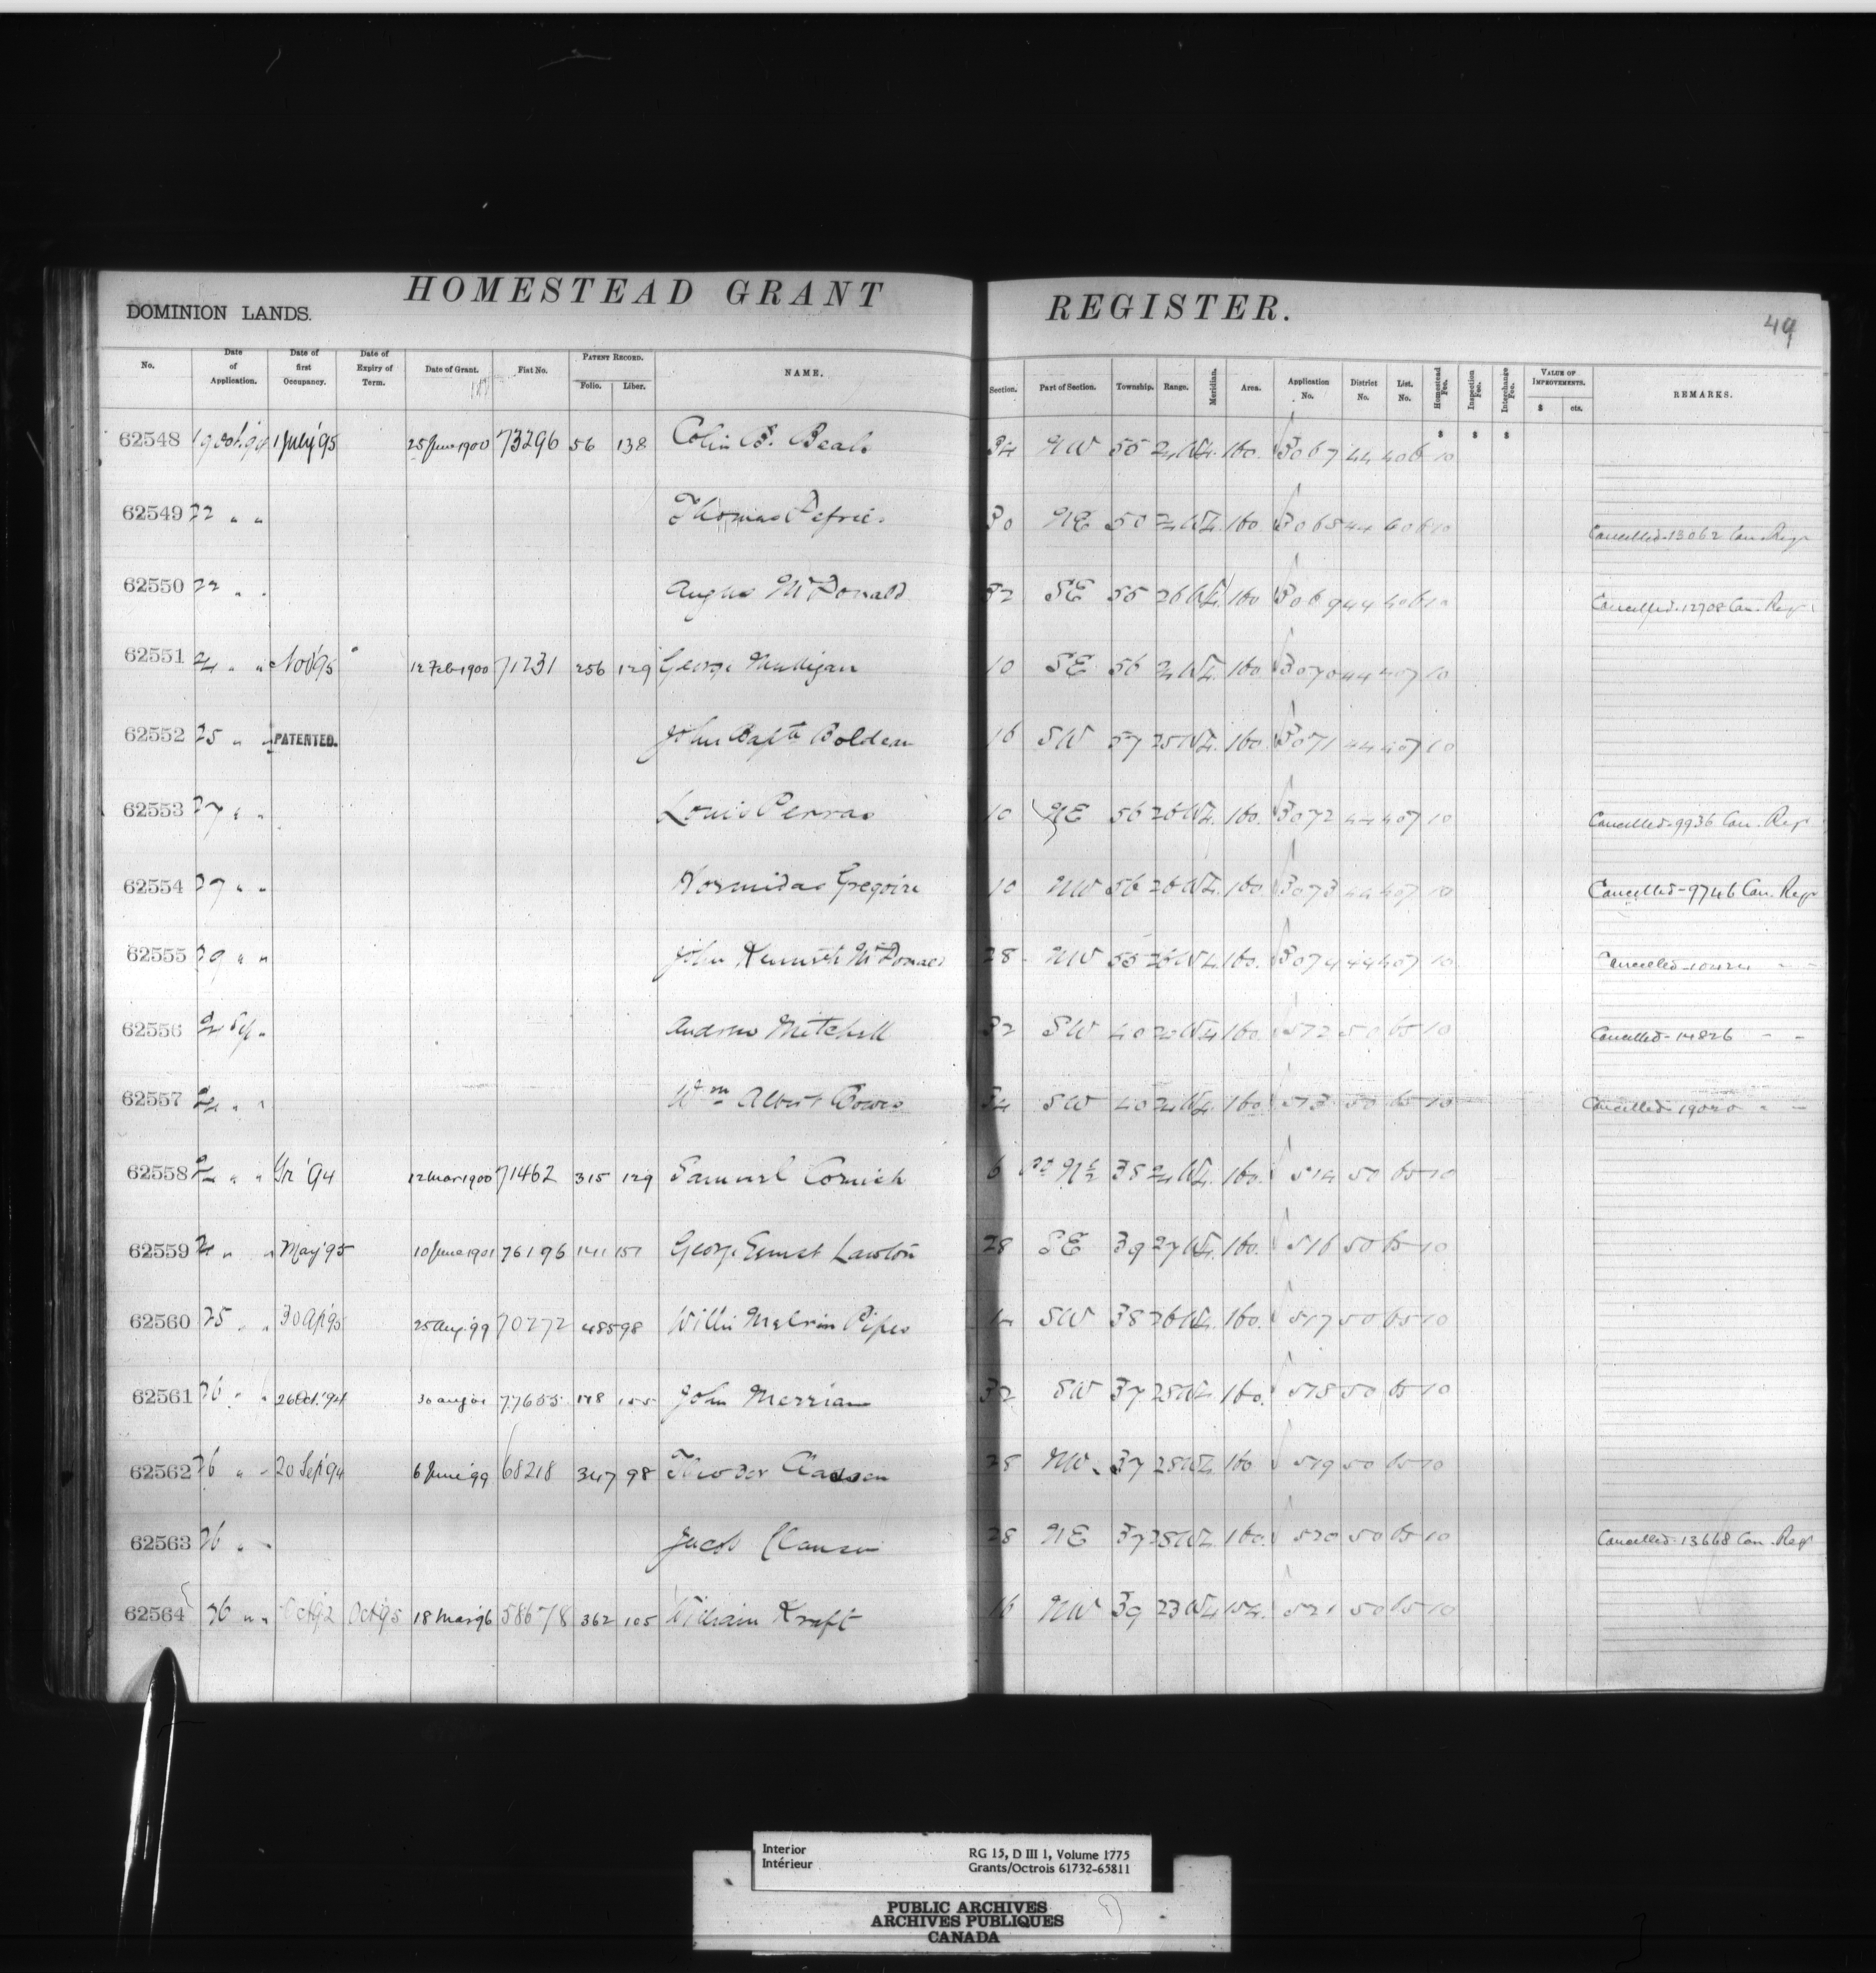 HOMESTEAD GRANT REGISTER.
DOMINION LANDS.
49
No. Date of Application. Date of first Occupancy. Date of Expiry of Term. Date of Grant. Fiat No. PATENT RECORD. Folio. Liber. NAME. Section. Part of Section. Township. Range. Meridian. Area. Application No. District No. List. No. Homestead Fee. Inspection Fee. Interchange Fee. VALUE OF IMPROVEMENTS. $ cts. REMARKS.
$ $ $
62548 1 July '95 25 June 1900 73296 56 138 Colin 34 NW 55 24 W 4. 160. 3067 44 406 10
62549 22 " " Thomas 30 NE 160. 3068 44 406 10 Cancelled - 13062 Can. Regr
62550 22 " " Angus McDonald 32 SE 55 26 W 4. 160 3069 44 406 10 Cancelled - 12708 Can. Regr
62551 24 " " Nov '95 12 Feb 1900 71231 256 129 George Mulligan 10 SE 56 24 W 4. 160. 3070 44 407 10
62552 25 " " PATENTED. John Bapte Boldeau 16 SW 57 25 W 4. 160. 3071 44 407 10
62553 27 " " Louis Perras 10 NE 56 26 W 4. 160. 3072 44 407 10 Cancelled - 9936 Can. Regr
62554 27 " " Hormidas Gregoire 10 NW 56 26 W 4. 160. 3073 44 407 10 Cancelled - 9746 Can. Regr
62555 29 " " John Kenneth McDonald 28 NW 55 26 W 4. 160. 3074 44 407 10 Cancelled - 10424 " "
62556 Andrew Mitchell 32 SW 40 W 4 160. 572 50 65 10 Cancelled - 14826 " "
62557 24 " " Wm Albert 34 SW 40 24 W 4. 160. 573 50 65 10 Cancelled - " "
62558 " " '94 12 Mar 1900 71462 315 129 Samuel Cornish 6 Pt N½ 38 24 W 4. 160. 514 50 65 10
62559 24 " " May '95 10 June 1901 76196 141 151 George Ernest Lawton 28 SE 39 27 W 4. 160. 516 50 65 10
62560 25 " " 30 Ap '95 25 Aug. '99 70272 485 98 Willis Melvin Pipes SW 38 26 W 4. 160. 517 50 65 10
62561 26 " " 26 Oct. '94 30 Aug '01 77655 178 155 John Merriam 32 SW 37 28 W 4 160. 518 50 65 10
62562 26 " " 20 Sept '94 6 June '99 68218 347 98 28 NW 37 28 W 4. 160 519 50 65 10
62563 26 " " Jacob Clausen 28 NE 37 28 W 4. 160. 520 50 65 10 Cancelled - 13668 Can. Regr
62564 26 " " Oct 92 Oct '95 18 Mar '96 58678 362 105 William Kraft 16 NW 39 23 W 4 154. 521 50 65 10
Interior
Intérieur
RG 15, D III 1, Volume 1775
Grants/Octrois 61732-65811
PUBLIC ARCHIVES
ARCHIVES PUBLIQUES
CANADA